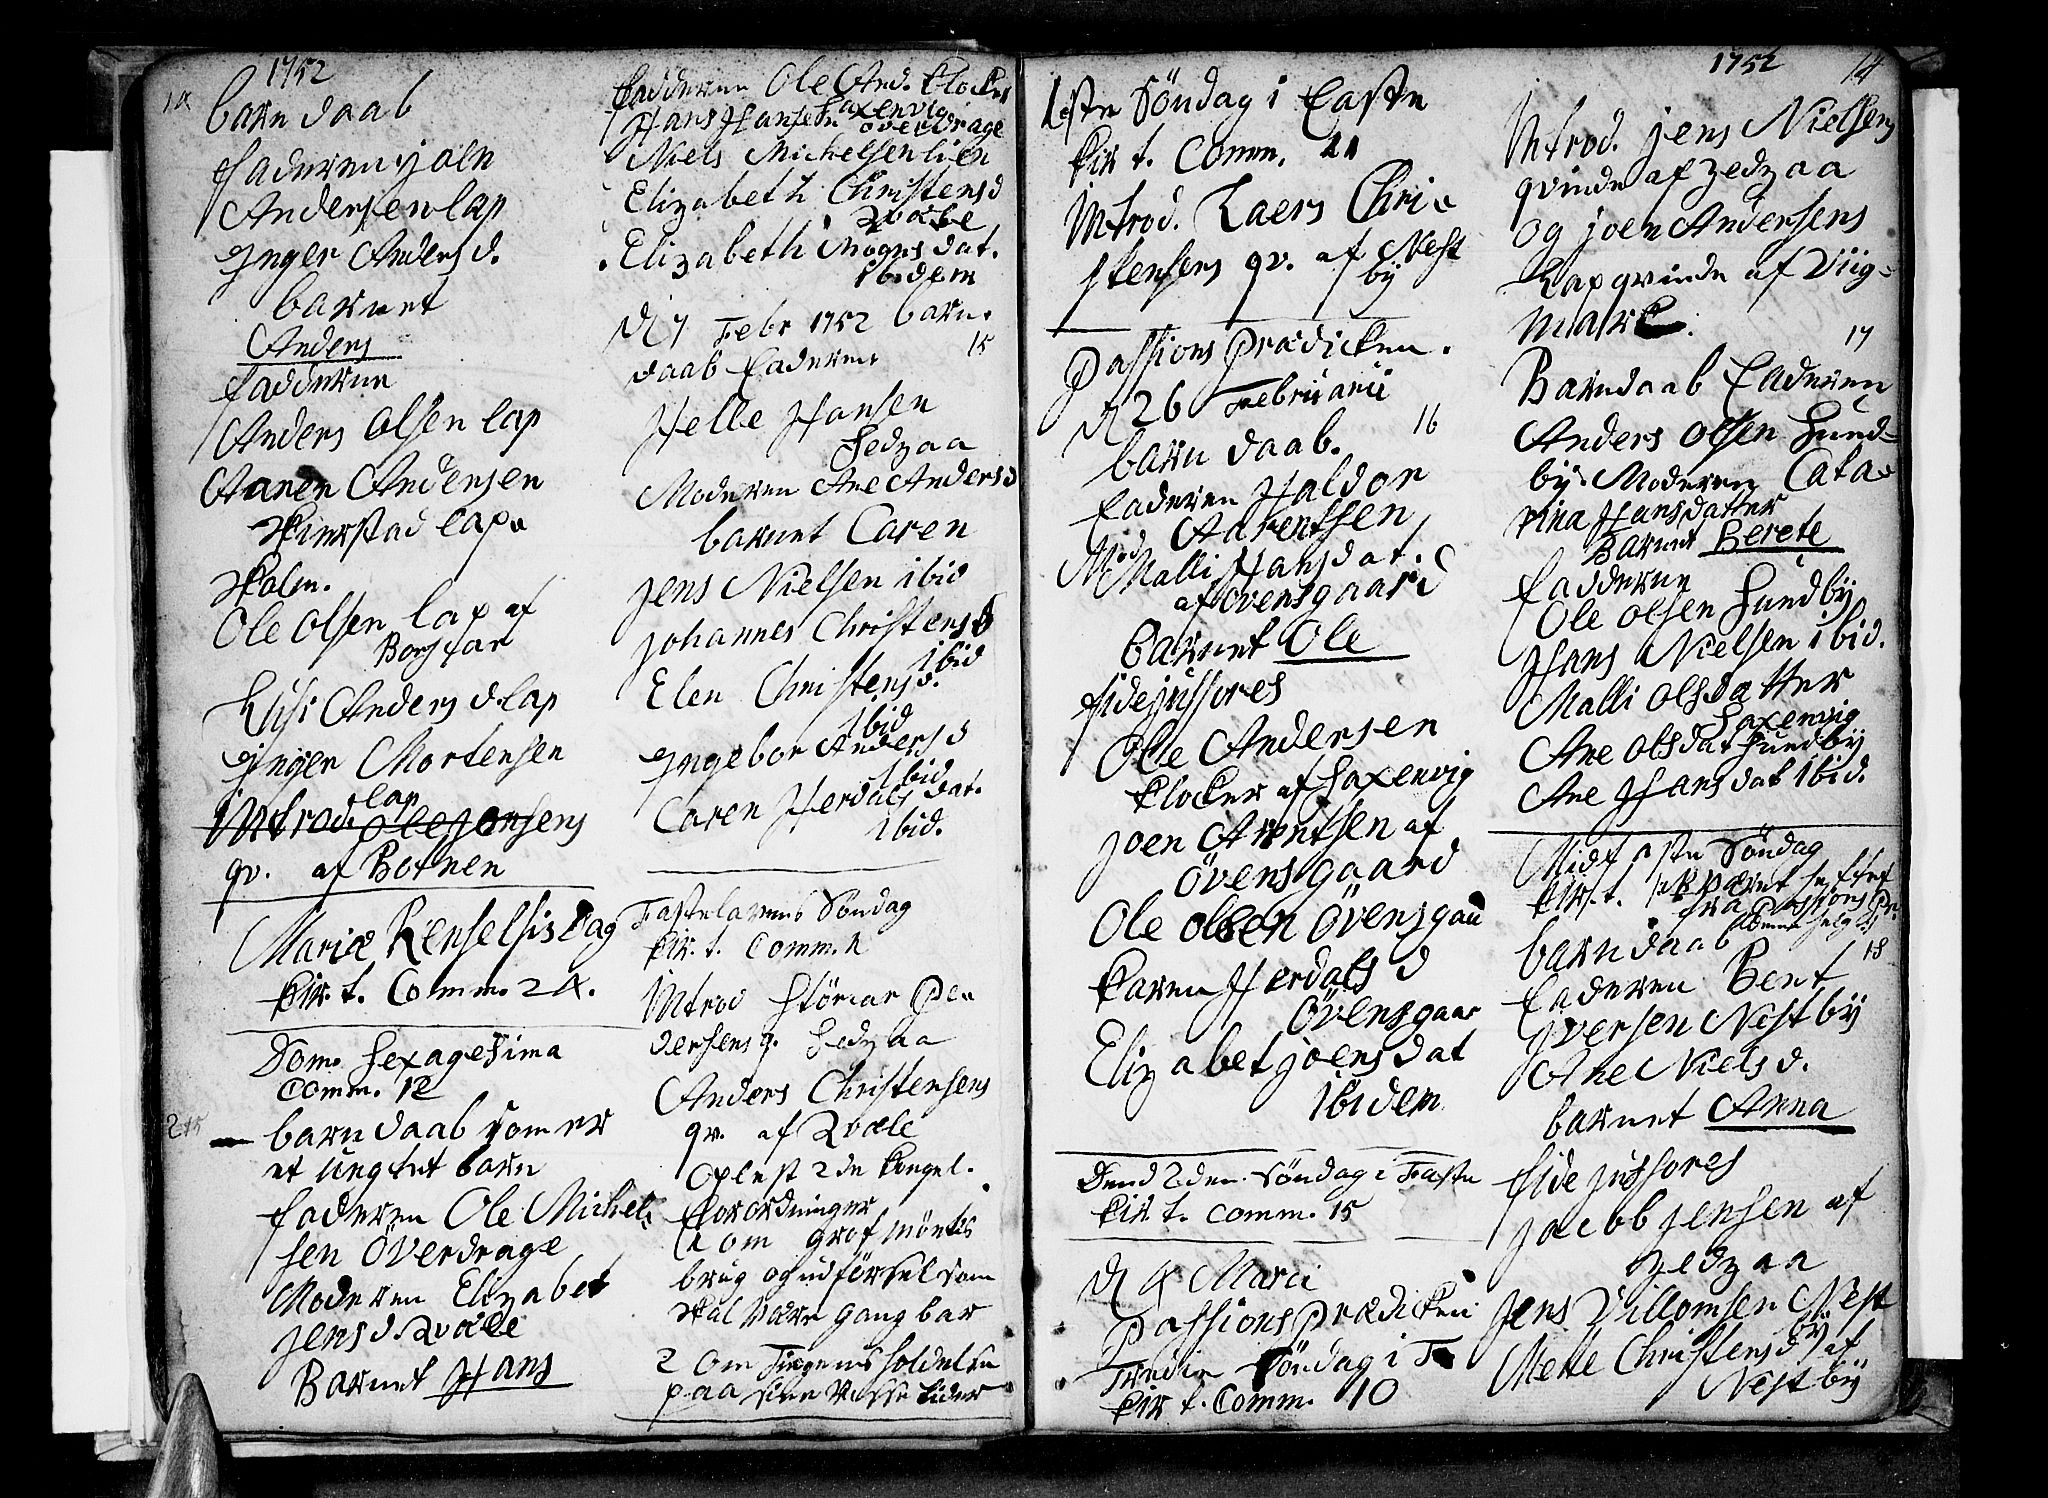 1752
14
barn daab
faderen joen
Andersen lap
Inger Andersd.
barnet
Anders
fadderne
Anders Olsen lap
Aaren Andersen
Skierstad lap
Ole Olsen lap af
Borsfar
Lisi Anders d lap
Inger Mortensen
lap
Introd. Ole Jonsens
qv. af Botnen
Mariæ Renselsis Dag
kir. t. Comm. 24.
Dom. Sexagesima
Comm. 12
barn daab som er
et uegtet barn
faderen Ole Michel
sen Överdrage
Moderen Elizabet
Jensd Qvæle
Barnet Hans
fadderne Ole And. klocker
Saxenvig
Hans Hansen överdrage
Niels Michelsen lien
Elizabeth Christensd
Qvæle
Elizabeth Mogns dat.
ibidem
D 7 Febr 1752 barn
15
daab faderen
Helle Hansen
Sedzaa
Moderen Ane Andersd
barnet Caren
Jens Nielsen ibid
Johannes Christens
ibid
Elen Christensd.
ibid
Ingebor Andersd
ibid
Caren Herdals dat.
ibid.
Fastelavens Söndag
kir. t. Comm.
Introd Störiar Pe
dersens q. Sedzaa
Anders Christensens
qv. af Qvæle
Oplest 2de kongel.
forordninger
1 om grof mönts
brug og udförsel som
skal være gangbar
2 om Tingenis holdelse
paa sine visse tider
1752
14
1ste Söndag i Faste
kir t. Comm. 11
Introd. Laers Chri
stensens qv. af Nest
by
Passions Prædicken.
D 26 Februarii
16
barn daab.
faderen Haldor
Aarentsen
Mod. Malli Hansdat.
af Övensgaard
barnet Ole
fidejussores
Ole Andersen
klocker af Saxenvig
Joen Arentsen af
Övensgaard
Ole Olsen Övensgaa
Karen Herdals d
Övensgaar
Elizabet Joens dat
ibidem
Dend 2den Söndag i Faste
kir t. Comm. 15
D 4 Marci
Passions Prædicken
Tredie Söndag i Fa
kir t. Comm. 10
Introd. Jens Nielsens
qvinde af Zedzaa
og Joen Andersens
Lap qvinde af Viig
mark.
17
Barn daab faderen
Anders Olsen Sund
by. Moderen Cata
rina Hansdatter
Barnet Berete
fadderne
Ole Olsen Sundby
Hans Nielsen ibid.
Malli Olsdatter
Saxenvig
Ane Olsdat Sundby
Ane Hansdat ibid.
Midfaste Söndag
kir. t.
fra Passions Pr.
barn daab
18
faderen Bent
Iversen Nestby
Ane Nielsd.
barnet Anna
fidejussores
Jacob Jensen af
Zedzaa
Jens Villomsen Nest
by
Mette Christensd af
Nestby